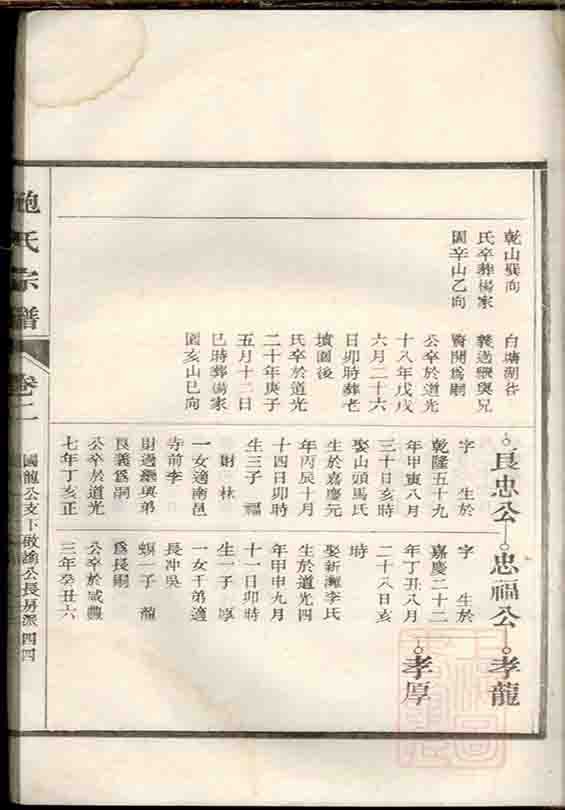 乾山巽向
氏卒葬楊家
園辛山乙向
白塘朔谷
義過繼與兄
賢開為嗣
公卒於道光
十八年戊戌
六月二十六
日卯時葬老
墳園後
氏卒於道光
二十年庚子
五月十二日
巳時葬楊家
園亥山巳向
良忠公
字 生於
乾隆五十九
年甲寅八月
三十日亥時
娶山頭馬氏
生於嘉慶元
年丙辰十月
十四日卯時
生三子 福
財 林
一女適南邑
寺前李
財過繼與弟
良義為嗣
公卒於道光
七年丁亥正
忠福公
字 生於
嘉慶二十二
年丁丑八月
二十八日亥
時
娶新灘李氏
生於道光四
年甲申九月
十一日卯時
生一子 厚
一女千弟適
長冲吳
娯一子 龍
為長嗣
公卒於咸豐
三年癸丑六
孝龍
孝厚
鮑氏宗譜
卷二
國龍公支下啟諭公長房派 四四